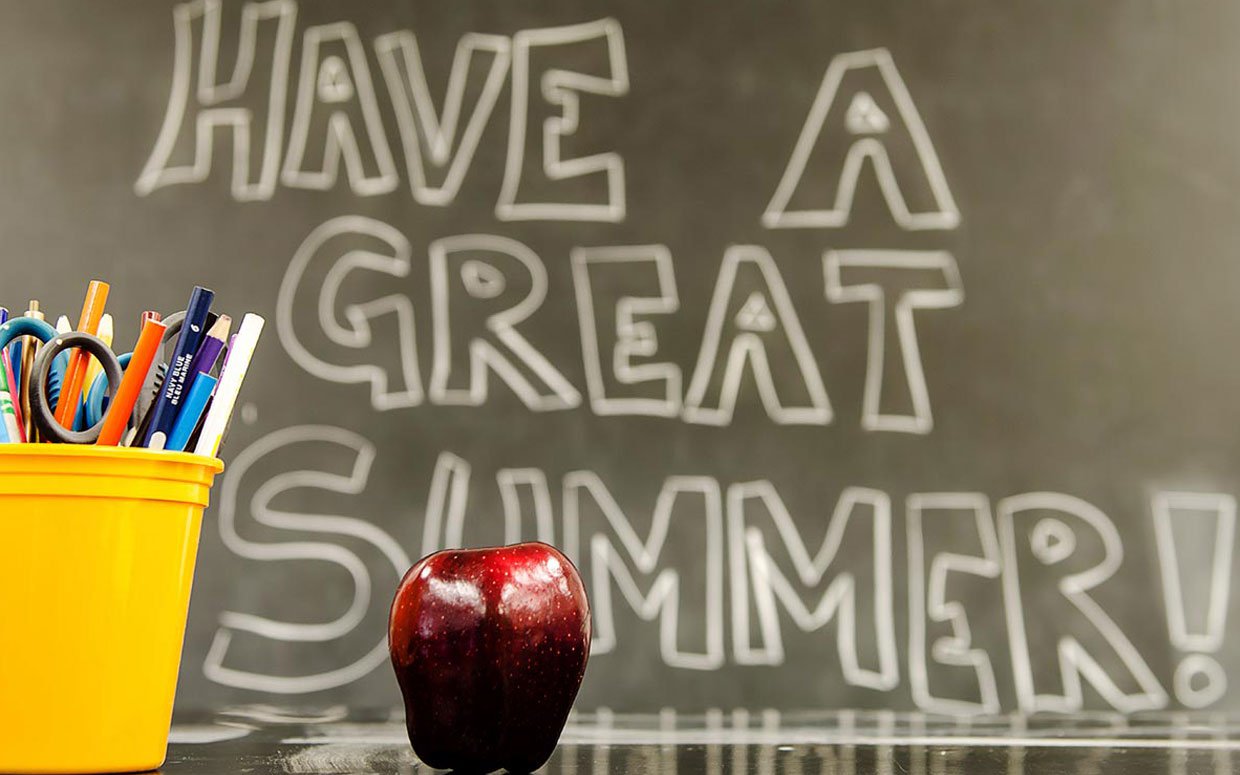 HAVE A
GREAT
SUMMER!
NAVY BLUE
BLEU MARINE